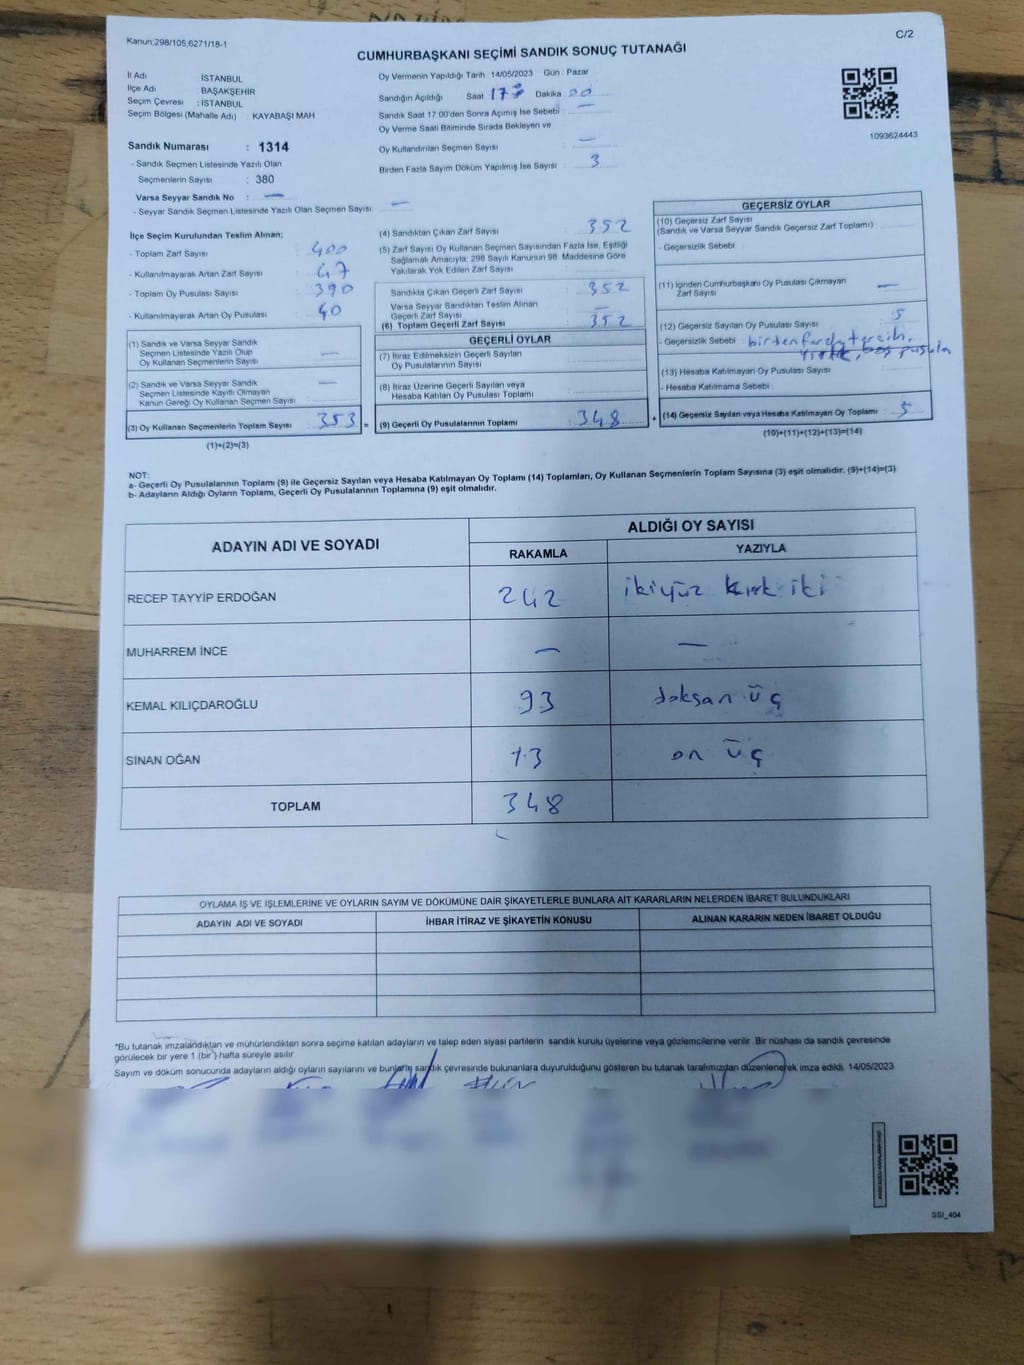 Kanun,298/105,6271/18-1
C/2
CUMHURBAŞKANI SEÇİMİ SANDIK SONUÇ TUTANAĞI
İl Adı İSTANBUL
İlçe Adı BAŞAKŞEHİR
Seçim Çevresi : İSTANBUL
Seçim Bölgesi (Mahalle Adı) : KAYABAŞI MAH
Sandık Numarası : 1314
- Sandık Seçmen Listesinde Yazılı Olan
Seçmenlerin Sayısı : 380
Varsa Seyyar Sandık No : —
- Seyyar Sandık Seçmen Listesinde Yazılı Olan Seçmen Sayısı : —
Oy Vermenin Yapıldığı Tarih : 14/05/2023 Gün : Pazar
Sandığın Açıldığı Saat 17 Dakika 00
Sandık Saat 17.00'den Sonra Açılmış İse Sebebi : —
Oy Verme Saati Bitiminde Sırada Bekleyen ve
Oy Kullandırılan Seçmen Sayısı : —
Birden Fazla Sayım Döküm Yapılmış İse Sayısı : 3
1093624443
İlçe Seçim Kurulundan Teslim Alınan;
- Toplam Zarf Sayısı : 400
- Kullanılmayarak Artan Zarf Sayısı : 47
- Toplam Oy Pusulası Sayısı : 390
- Kullanılmayarak Artan Oy Pusulası : 40
(1) Sandık ve Varsa Seyyar Sandık
Seçmen Listesinde Yazılı Olup
Oy Kullanan Seçmenlerin Sayısı : —
(2) Sandık ve Varsa Seyyar Sandık
Seçmen Listesinde Kayıtlı Olmayan
Kanun Gereği Oy Kullanan Seçmen Sayısı : —
(3) Oy Kullanan Seçmenlerin Toplam Sayısı : 353 =
(1)+(2)=(3)
(4) Sandıktan Çıkan Zarf Sayısı : 352
(5) Zarf Sayısı Oy Kullanan Seçmen Sayısından Fazla İse, Eşitliği
Sağlamak Amacıyla, 298 Sayılı Kanunun 98. Maddesine Göre
Yakılarak Yok Edilen Zarf Sayısı :
Sandıkta Çıkan Geçerli Zarf Sayısı : 352
Varsa Seyyar Sandıktan Teslim Alınan
Geçerli Zarf Sayısı : —
(6) Toplam Geçerli Zarf Sayısı : 352
GEÇERLİ OYLAR
(7) İtiraz Edilmeksizin Geçerli Sayılan
Oy Pusulalarının Sayısı :
(8) İtiraz Üzerine Geçerli Sayılan veya
Hesaba Katılan Oy Pusulası Toplamı :
(9) Geçerli Oy Pusulalarının Toplamı : 348 +
GEÇERSİZ OYLAR
(10) Geçersiz Zarf Sayısı
(Sandık ve Varsa Seyyar Sandık Geçersiz Zarf Toplamı) :
- Geçersizlik Sebebi :
(11) İçinden Cumhurbaşkanı Oy Pusulası Çıkmayan
Zarf Sayısı : —
(12) Geçersiz Sayılan Oy Pusulası Sayısı : 5
- Geçersizlik Sebebi : birden fazla tercih,
yırtık, boş pusula
(13) Hesaba Katılmayan Oy Pusulası Sayısı :
- Hesaba Katılmama Sebebi :
(14) Geçersiz Sayılan veya Hesaba Katılmayan Oy Toplamı : 5
(10)+(11)+(12)+(13)=(14)
NOT:
a- Geçerli Oy Pusulalarının Toplamı (9) ile Geçersiz Sayılan veya Hesaba Katılmayan Oy Toplamı (14) Toplamları, Oy Kullanan Seçmenlerin Toplam Sayısına (3) eşit olmalıdır. (9)+(14)=(3)
b- Adayların Aldığı Oyların Toplamı, Geçerli Oy Pusulalarının Toplamına (9) eşit olmalıdır.
ADAYIN ADI VE SOYADI
ALDIĞI OY SAYISI
RAKAMLA YAZIYLA
RECEP TAYYİP ERDOĞAN 242 ikiyüz kırk iki
MUHARREM İNCE — —
KEMAL KILIÇDAROĞLU 93 doksan üç
SİNAN OĞAN 13 on üç
TOPLAM 348
OYLAMA İŞ VE İŞLEMLERİNE VE OYLARIN SAYIM VE DÖKÜMÜNE DAİR ŞİKAYETLERLE BUNLARA AİT KARARLARIN NELERDEN İBARET BULUNDUKLARI
ADAYIN ADI VE SOYADI İHBAR İTİRAZ VE ŞİKAYETİN KONUSU ALINAN KARARIN NEDEN İBARET OLDUĞU
*Bu tutanak imzalandıktan ve mühürlendikten sonra seçime katılan adayların ve talep eden siyasi partilerin sandık kurulu üyelerine veya gözlemcilerine verilir. Bir nüshası da sandık çevresinde
görülecek bir yere 1 (bir ) hafta süreyle asılır.
Sayım ve döküm sonucunda adayların aldığı oyların sayılarını ve bunların sandık çevresinde bulunanlara duyurulduğunu gösteren bu tutanak tarafımızdan düzenlenerek imza edildi. 14/05/2023
SSI_404